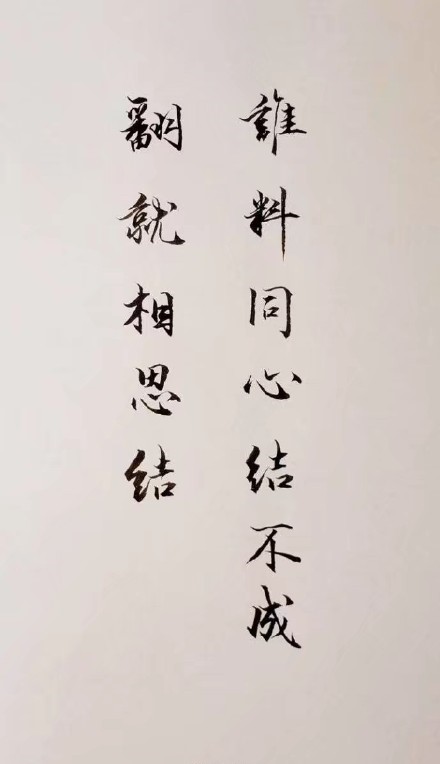 誰料同心結不成
翻就相思结